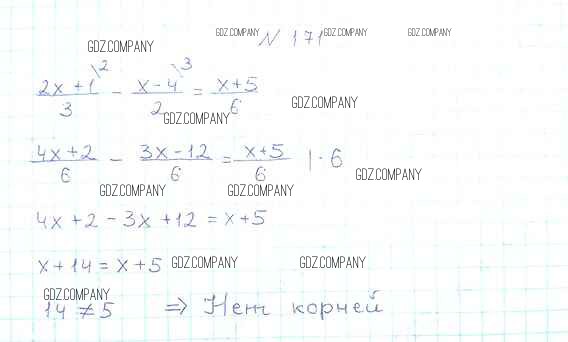 GDZ.COMPANY GDZ.COMPANY N 171 GDZ.COMPANY GDZ.COMPANY
(2x+1)/3 \2 - (x-4)/2 \3 = (x+5)/6
GDZ.COMPANY GDZ.COMPANY
(4x+2)/6 - (3x-12)/6 = (x+5)/6 | · 6
GDZ.COMPANY GDZ.COMPANY GDZ.COMPANY
4x+2-3x+12=x+5
x+14=x+5 GDZ.COMPANY GDZ.COMPANY
GDZ.COMPANY
14≠5 ⇒ Нет корней